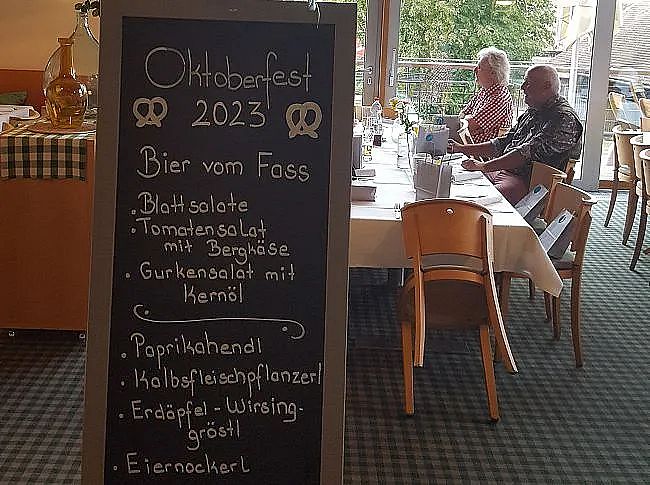 Oktoberfest
2023
Bier vom Fass
. Blattsalate
. Tomatensalat
mit Bergkäse
. Gurkensalat mit
Kernöl
. Paprikahendl
. Kalbsfleischpflanzerl
. Erdäpfel - Wirsing-
gröstl
. Eiernockerl